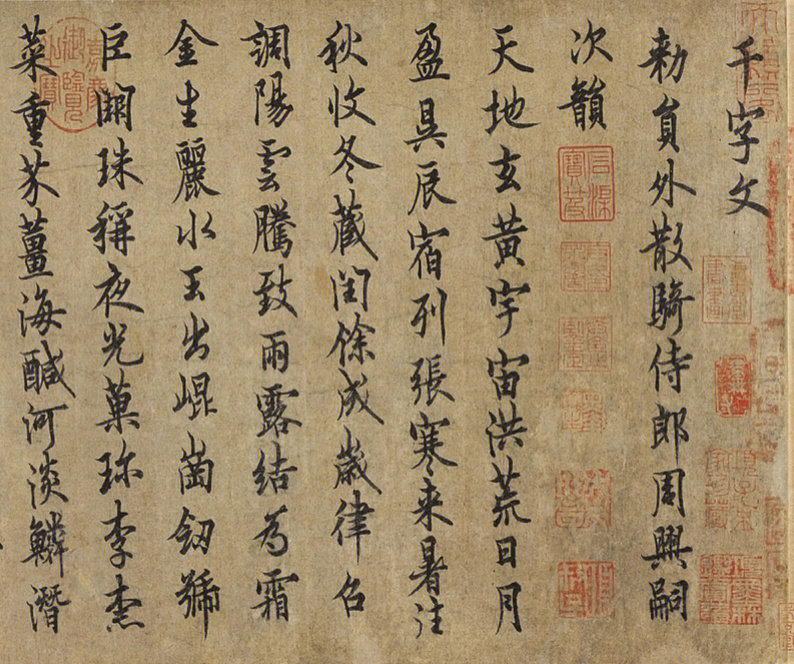 千字文
勑員外散騎侍郎周興嗣
次韻
天地玄黃宇宙洪荒日月
盈昃辰宿列張寒来暑往
秋收冬藏閏餘成歲律召
調陽雲騰致雨露結為霜
金生麗水玉出崐崗劒號
巨闕珠稱夜光菓珎李柰
菜重芥薑海醎河淡鱗潛
嘉慶御覽之寶